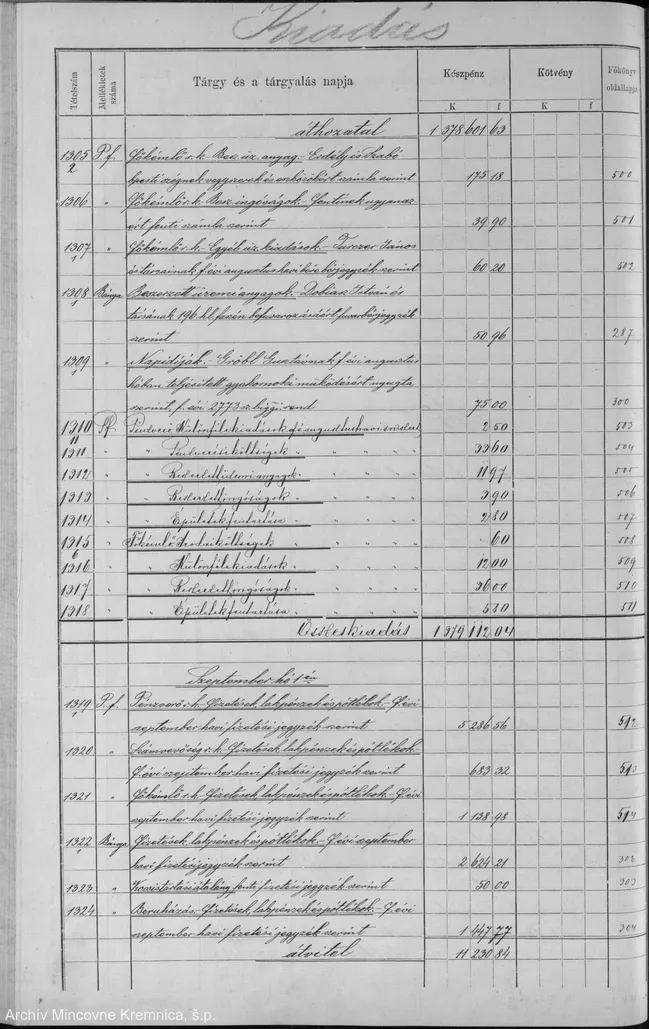 Kiadás
Tételszám
Mellékletek száma
Tárgy és a tárgyalás napja
Készpénz
Kötvény
Főkönyv oldallapja
K f K f
áthozatal 1 378 601 63
1305/2 P.f. Főkémlő r. k. Besz. üz. anyag. - Erdélyi és Szabó
pesti czégnek vegyszerek és eszközökért számla szerint 175 18 500
1306 " Főkémlő r. k. Besz. ingóságok. - Fentinek ugyanaz
ért fenti számla szerint 39 90 501
1307/1 " Főkémlő r. k. - Egyéb üz. kiadások. - Turczer János
és társainak f. évi augusztus havi bére bérjegyzék szerint 60 20 502
1308/1 Bánya Beszerzett üzemi anyagok. - Dobiás István és
társának 196 hl. faszén befuvarozásáért fuvarbérjegyzék
szerint 50 96 287
1309/1 " Napidíjak. - Gröbl Gusztávnak f. évi augusztus
hóban teljesített gyakornoki működéséért nyugta
szerint, f. évi 2773 sz. higgi. rend 75 00 300
1310/11 P.f. Pénzverő Különféle kiadások f. é. augusztus havi szerint 2 50 503
1311 " " Pénzverési költségek " " " " 33 60 504
1312 " " Beszerzett üzemi anyagok " " " " 11 97 505
1313 " " Beszerzett ingóságok " " " " 3 90 506
1314 " " Épületek fentartása " " " " 2 80 507
1315/6 " Főkémlő Irodai költségek " " " " 60 508
1316 " " Különféle kiadások " " " " 12 00 509
1317 " " Beszerzett ingóságok " " " " 36 00 510
1318 " " Épületek fentartása " " " " 5 30 511
Összes kiadás 1 379 112 04
Szeptember hó 1 én
1319/1 P.f. Pénzverő r. k. Fizetések, lakpénzek és pótlékok. - F. évi
szeptember havi fizetési jegyzék szerint 5 286 56 512
1320 " Számvevőség r. k. Fizetések, lakpénzek és pótlékok. -
F. évi szeptember havi fizetési jegyzék szerint 683 32 513
1321 " Főkémlő r. k. Fizetések, lakpénzek és pótlékok. - F. évi
szeptember havi fizetési jegyzék szerint 1 138 98 514
1322/1 Bánya Fizetések, lakpénzek és pótlékok. - F. évi szeptember
havi fizetési jegyzék szerint 2 624 21 302
1323 " Kocsitartási átalány, fenti fizetési jegyzék szerint 50 00 303
1324 " Beruházás. Fizetések, lakpénzek és pótlékok. - F. évi
szeptember havi fizetési jegyzék szerint 1 447 77 304
átvitel 11 230 84
Archív Mincovne Kremnica, š.p.